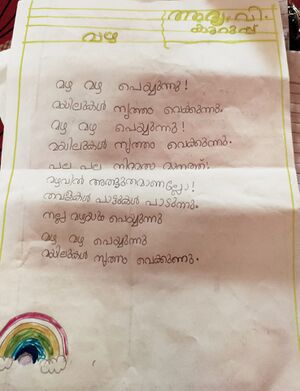 ആദ്യ. വി.
കുറുപ്പ്
മഴ
മഴ മഴ പെയ്യുന്നു!
മയിലുകൾ നൃത്തം വെക്കുന്നു.
മഴ മഴ പെയ്യുന്നു!
മയിലുകൾ നൃത്തം വെക്കുന്നു.
പല പല നിറമുള്ള മാനത്ത്
മഴവിൽ അത്ഭുതമാണല്ലോ!
തവളകൾ പാട്ടുകൾ പാടുന്നു.
നല്ല മഴയും പെയ്യുന്നു
മഴ മഴ പെയ്യുന്നു
മയിലുകൾ നൃത്തം വെക്കുന്നു.